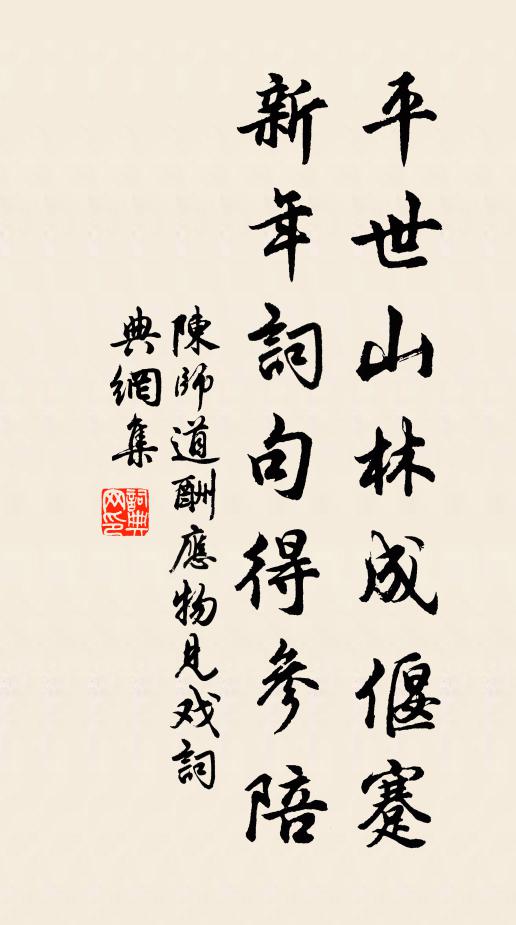 平世山林成偃蹇
新年詞句得參陪
陳師道酬應物見戏詞
典網集
詞典
网印